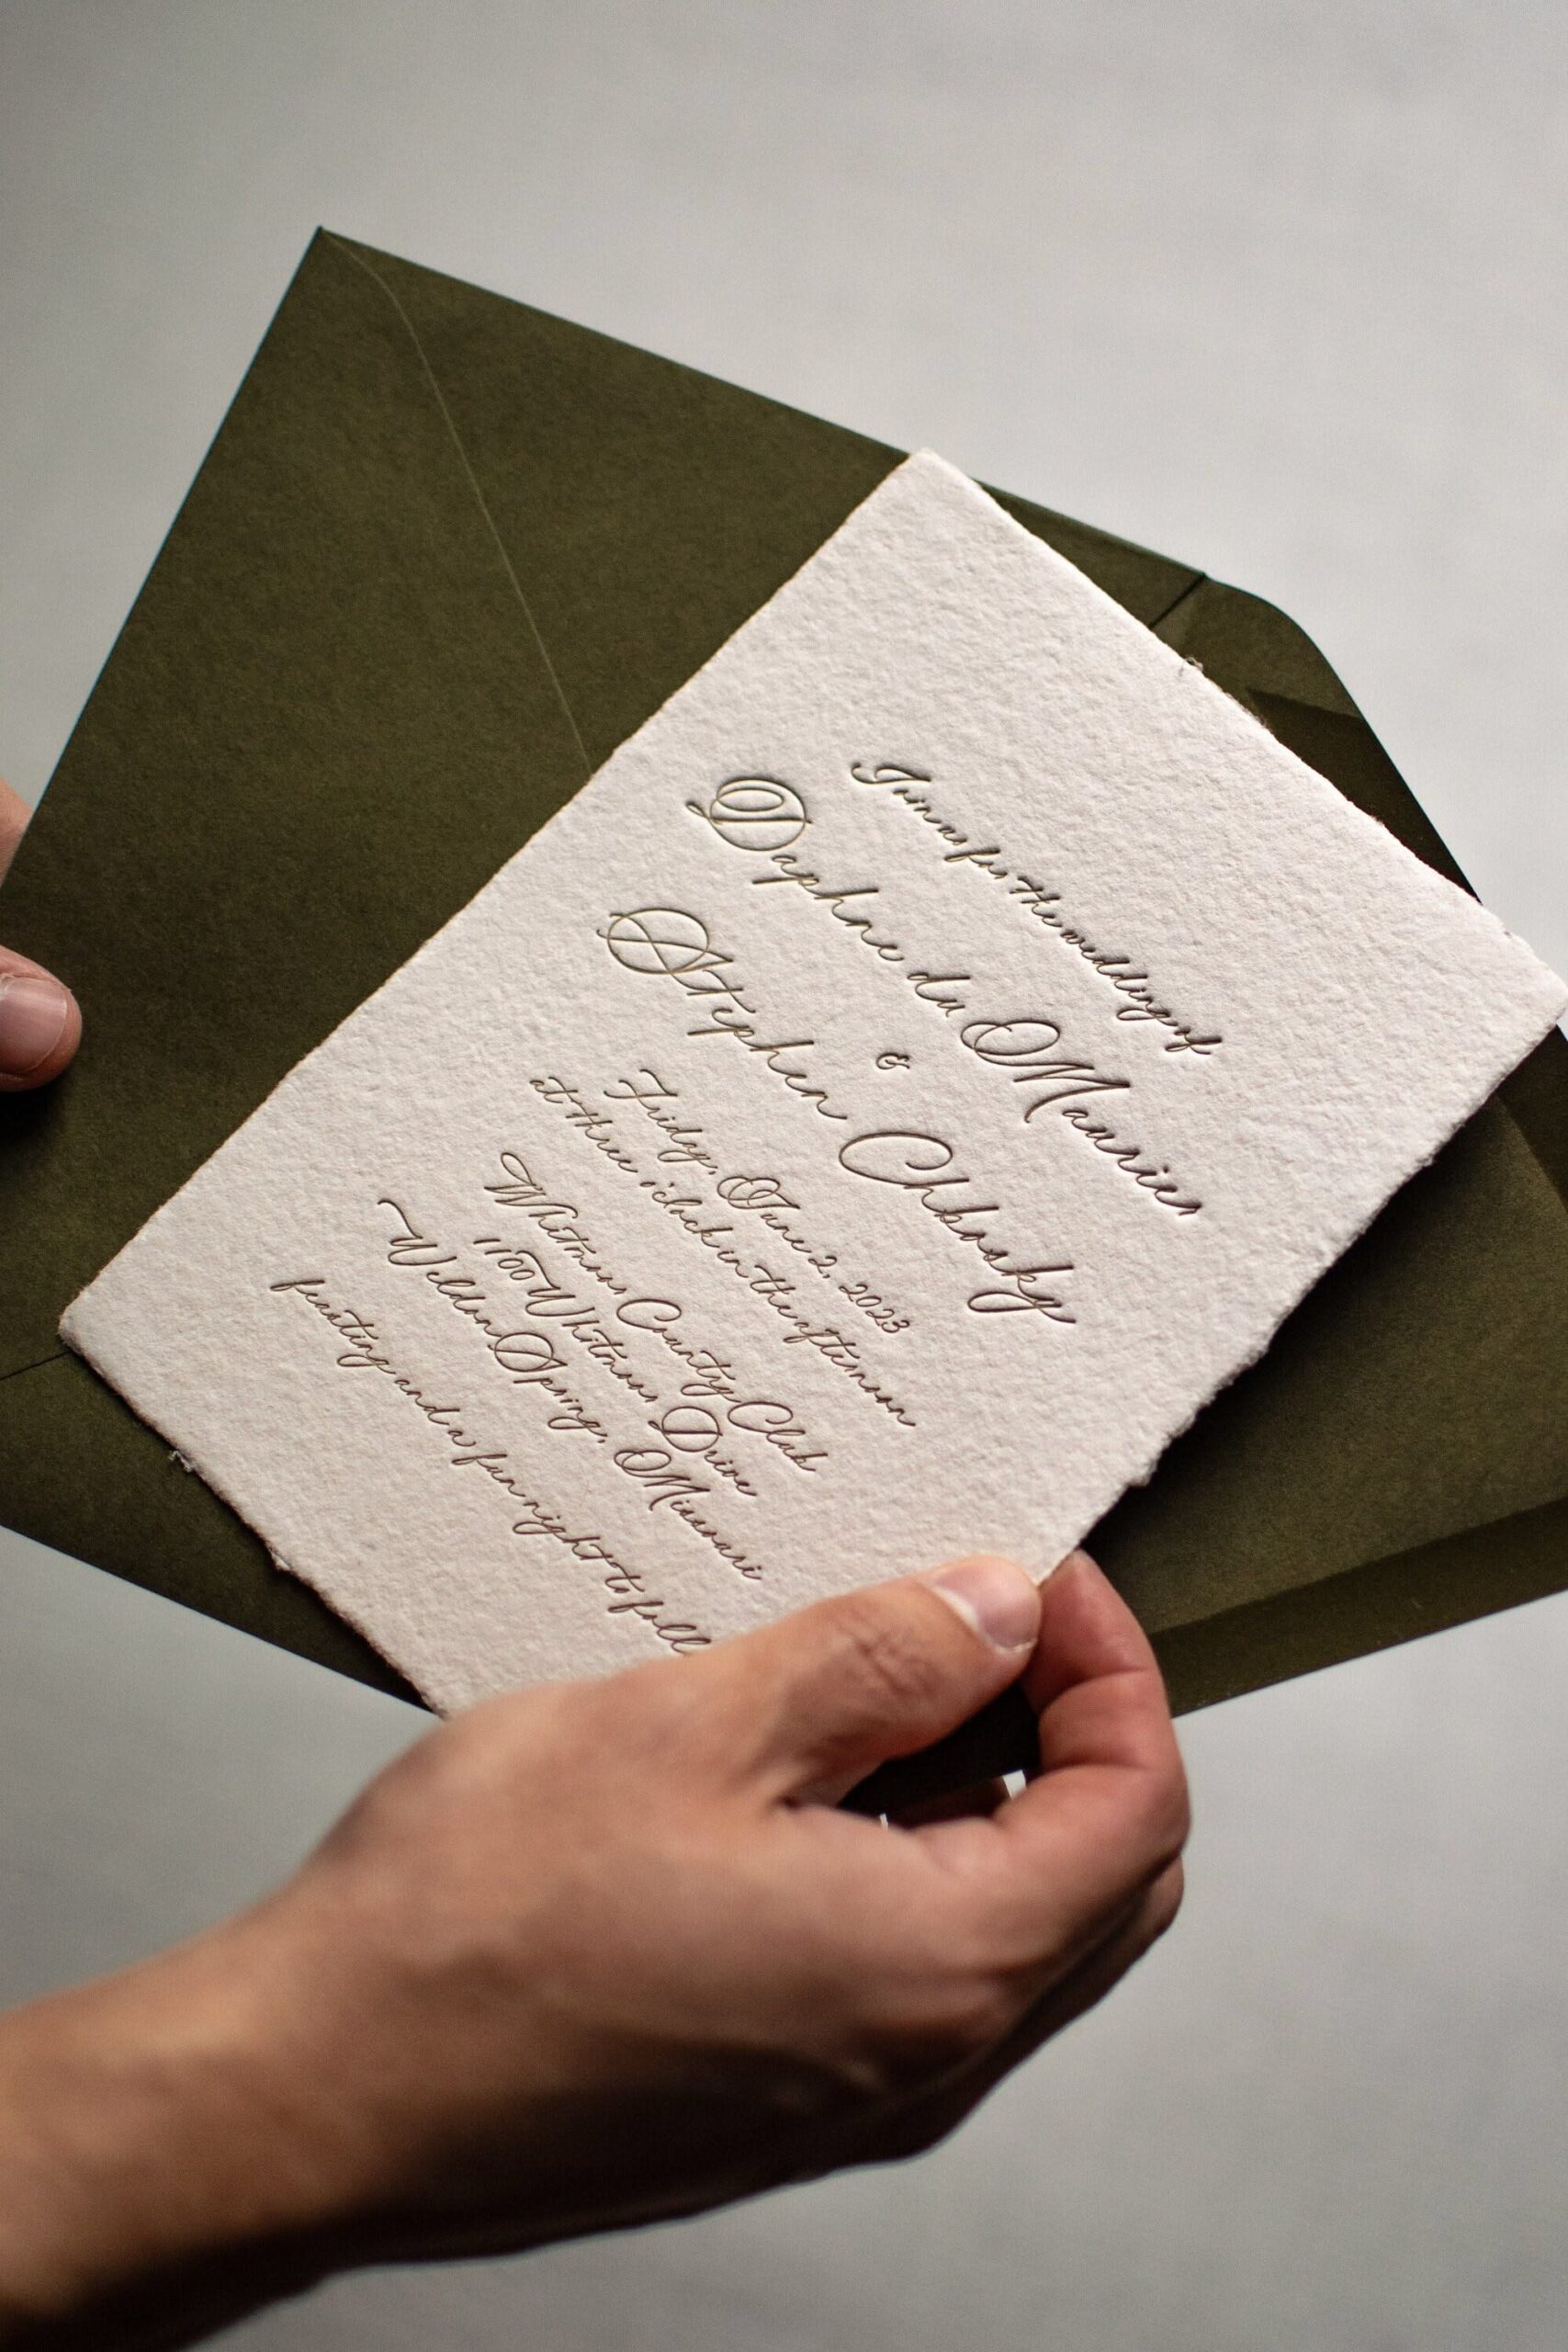 Join us for the wedding of
Daphne du Maurier
&
Stephen Chbosky
Friday, June 2, 2023
at three o'clock in the afternoon
Whitmoor Country Club
1100 Whitmoor Drive
Weldon Spring, Missouri
feasting and a fun night to follow